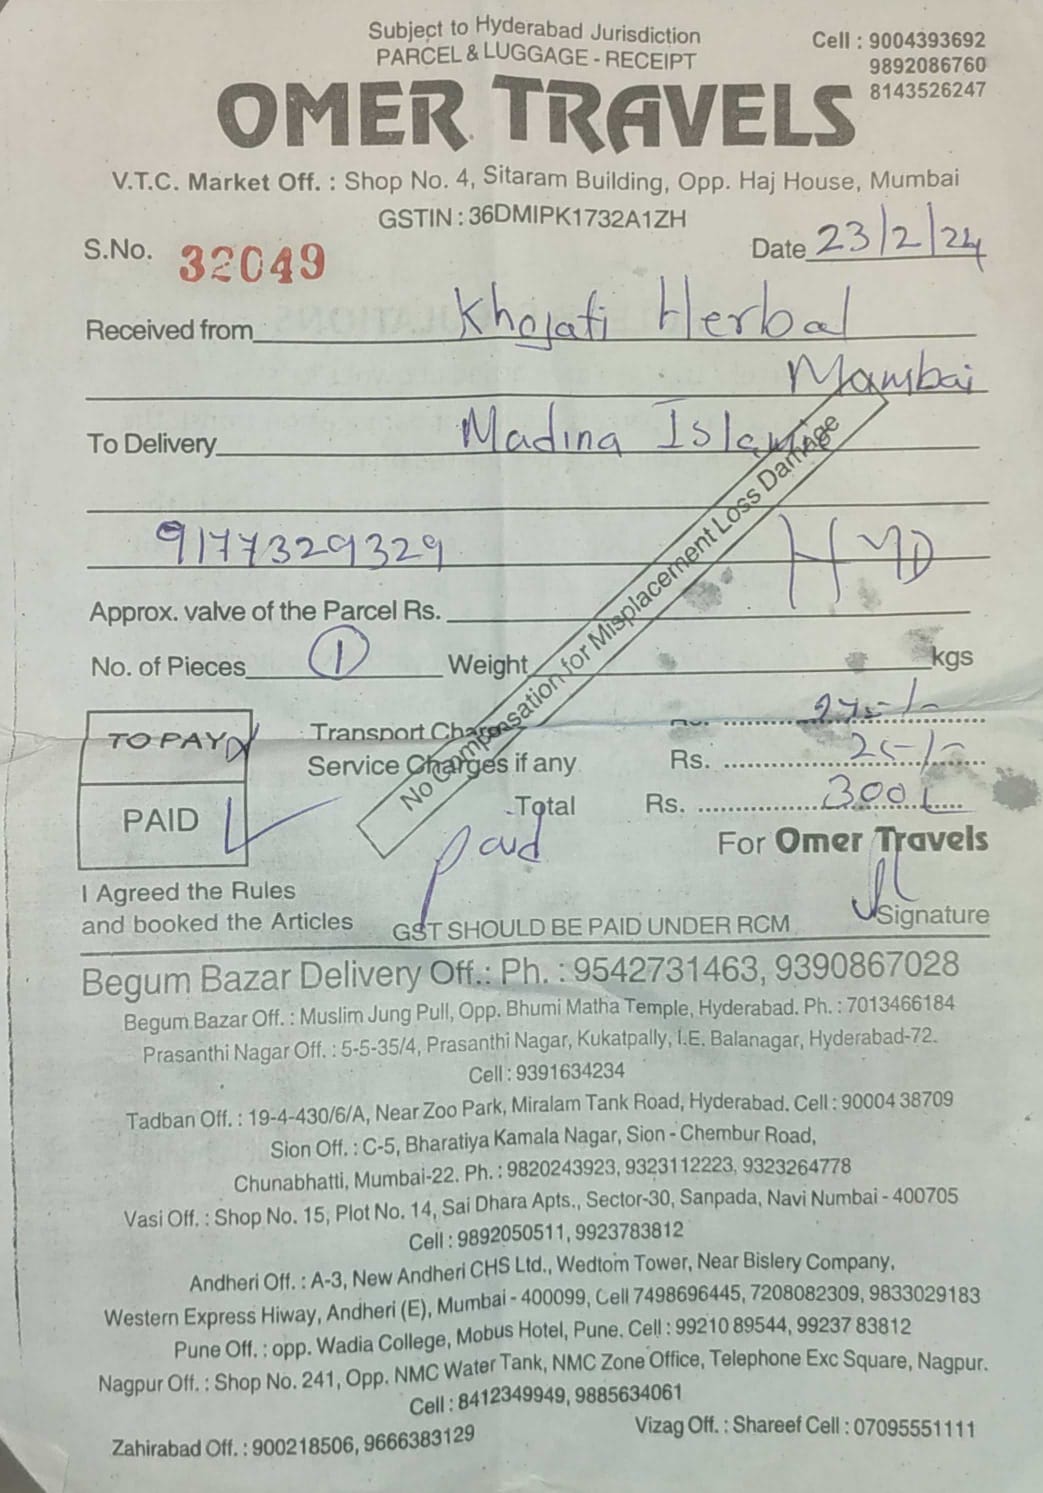 Subject to Hyderabad Jurisdiction
PARCEL & LUGGAGE - RECEIPT
Cell : 9004393692
9892086760
8143526247
OMER TRAVELS
V.T.C. Market Off. : Shop No. 4, Sitaram Building, Opp. Haj House, Mumbai
GSTIN : 36DMIPK1732A1ZH
S.No. 32049
Date 23/2/24
Received from Khojati Herbal
Mambai
To Delivery Madina Islamic
9177329329 HYD
Approx. valve of the Parcel Rs.
No. of Pieces 1 Weight kgs
No Compensation for Misplacement Loss Damage
TO PAY
PAID
Transport Charges Rs. 275-/-
Service Charges if any Rs. 25-/-
Total Rs. 300
Paid
For Omer Travels
I Agreed the Rules
and booked the Articles
GST SHOULD BE PAID UNDER RCM
Signature
Begum Bazar Delivery Off.: Ph. : 9542731463, 9390867028
Begum Bazar Off. : Muslim Jung Pull, Opp. Bhumi Matha Temple, Hyderabad. Ph. : 7013466184
Prasanthi Nagar Off. : 5-5-35/4, Prasanthi Nagar, Kukatpally, I.E. Balanagar, Hyderabad-72.
Cell : 9391634234
Tadban Off. : 19-4-430/6/A, Near Zoo Park, Miralam Tank Road, Hyderabad. Cell : 90004 38709
Sion Off. : C-5, Bharatiya Kamala Nagar, Sion - Chembur Road,
Chunabhatti, Mumbai-22. Ph. : 9820243923, 9323112223, 9323264778
Vasi Off. : Shop No. 15, Plot No. 14, Sai Dhara Apts., Sector-30, Sanpada, Navi Numbai - 400705
Cell : 9892050511, 9923783812
Andheri Off. : A-3, New Andheri CHS Ltd., Wedtom Tower, Near Bislery Company,
Western Express Hiway, Andheri (E), Mumbai - 400099, Cell 7498696445, 7208082309, 9833029183
Pune Off. : opp. Wadia College, Mobus Hotel, Pune. Cell : 99210 89544, 99237 83812
Nagpur Off. : Shop No. 241, Opp. NMC Water Tank, NMC Zone Office, Telephone Exc Square, Nagpur.
Cell : 8412349949, 9885634061
Zahirabad Off. : 900218506, 9666383129
Vizag Off. : Shareef Cell : 07095551111